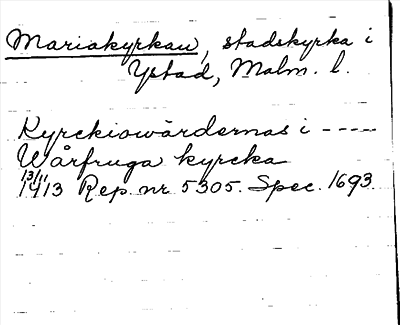 Mariakyrkan, stadskyrka i
Ystad, Malm. l.
Kyrckiowärdernas i -----
Wårfruga kyrcka
13/11 1413 Rep. nr 5305. Spec. 1693.